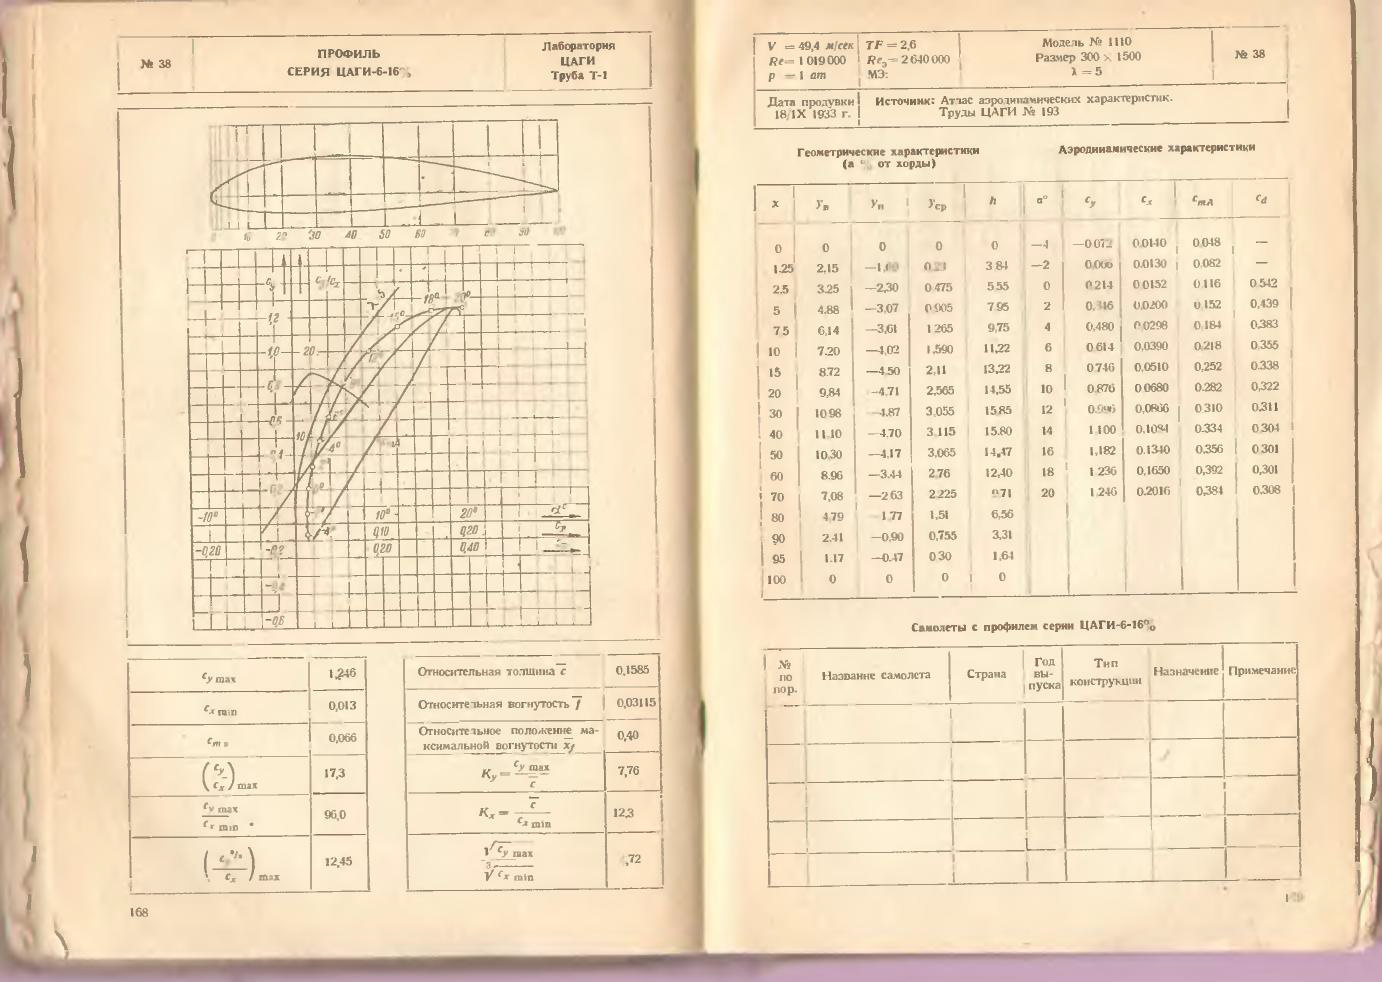 № 38
ПРОФИЛЬ
СЕРИЯ ЦАГИ-6-16%
Лаборатория
ЦАГИ
Труба Т-1
20 30 40 50 60 70 90
c_y c_y/c_x λ=5
18° 20°
1,2
1,0 20
12°
0,6
10
4°
-10° 10° 20° α°
0,10 0,20
-0,20 -0,2 0,20 0,40
-0,6
c_y max 1,246
c_x min 0,013
c_m 0 0,066
(c_y/c_x) max 17,3
c_y max / c_x min 96,0
max 12,45
Относительная толщина c̄ 0,1585
Относительная вогнутость f̄ 0,03115
Относительное положение ма-
ксимальной вогнутости x̄_f 0,40
K_y = c_y max / c̄ 7,76
K_x = c̄ / c_x min 12,3
√c_y max / ³√c_x min ,72
168
V = 49,4 м/сек TF = 2,6 Модель № 1110
Re = 1 019 000 Re_э = 2 640 000 Размер 300 × 1500 № 38
p = 1 ат МЭ: λ = 5
Дата продувки Источник: Атлас аэродинамических характеристик.
18/IX 1933 г. Труды ЦАГИ № 193
Геометрические характеристики Аэродинамические характеристики
(в % от хорды)
x y_в y_н y_ср h α° c_y c_x c_mA c_d
0 0 0 0 0 —4 —0 072 0,0140 0,048 —
1,25 2,15 3 84 —2 0,0130 0,082 —
2,5 3,25 —2,30 0 475 5 55 0 0 214 0 0152 0 116 0 542
5 4,88 —3,07 0 905 7 95 2 0,0200 0 152 0,439
7 5 6,14 —3,61 1 265 9,75 4 0,480 0 0298 0 184 0,383
10 7,20 —4,02 1,590 11,22 6 0 614 0,0390 0,218 0 355
15 8 72 —4,50 2,11 13,22 8 0 746 0,0510 0,252 0 338
20 9,84 —4,71 2,565 14,55 10 0,876 0 0680 0,282 0,322
30 10 98 —4,87 3,055 15,85 12 0,0866 0 310 0,311
40 11 10 —4,70 3 115 15,80 14 1 100 0,1084 0,334 0 304
50 10,30 —4,17 3,065 14,47 16 1,182 0,1340 0,356 0 301
60 8,96 —3,44 2,76 12,40 18 1 236 0,1650 0,392 0,301
70 7,08 —2 63 2 225 9 71 20 1 246 0,2016 0,384 0,308
80 4 79 1 77 1,51 6,56
90 2,41 —0,90 0,755 3,31
95 1,17 —0,47 0 30 1,64
100 0 0 0 0
Самолеты с профилем серии ЦАГИ-6-16%
№ по пор. Название самолета Страна Год вы-пуска Тип конструкции Назначение Примечание